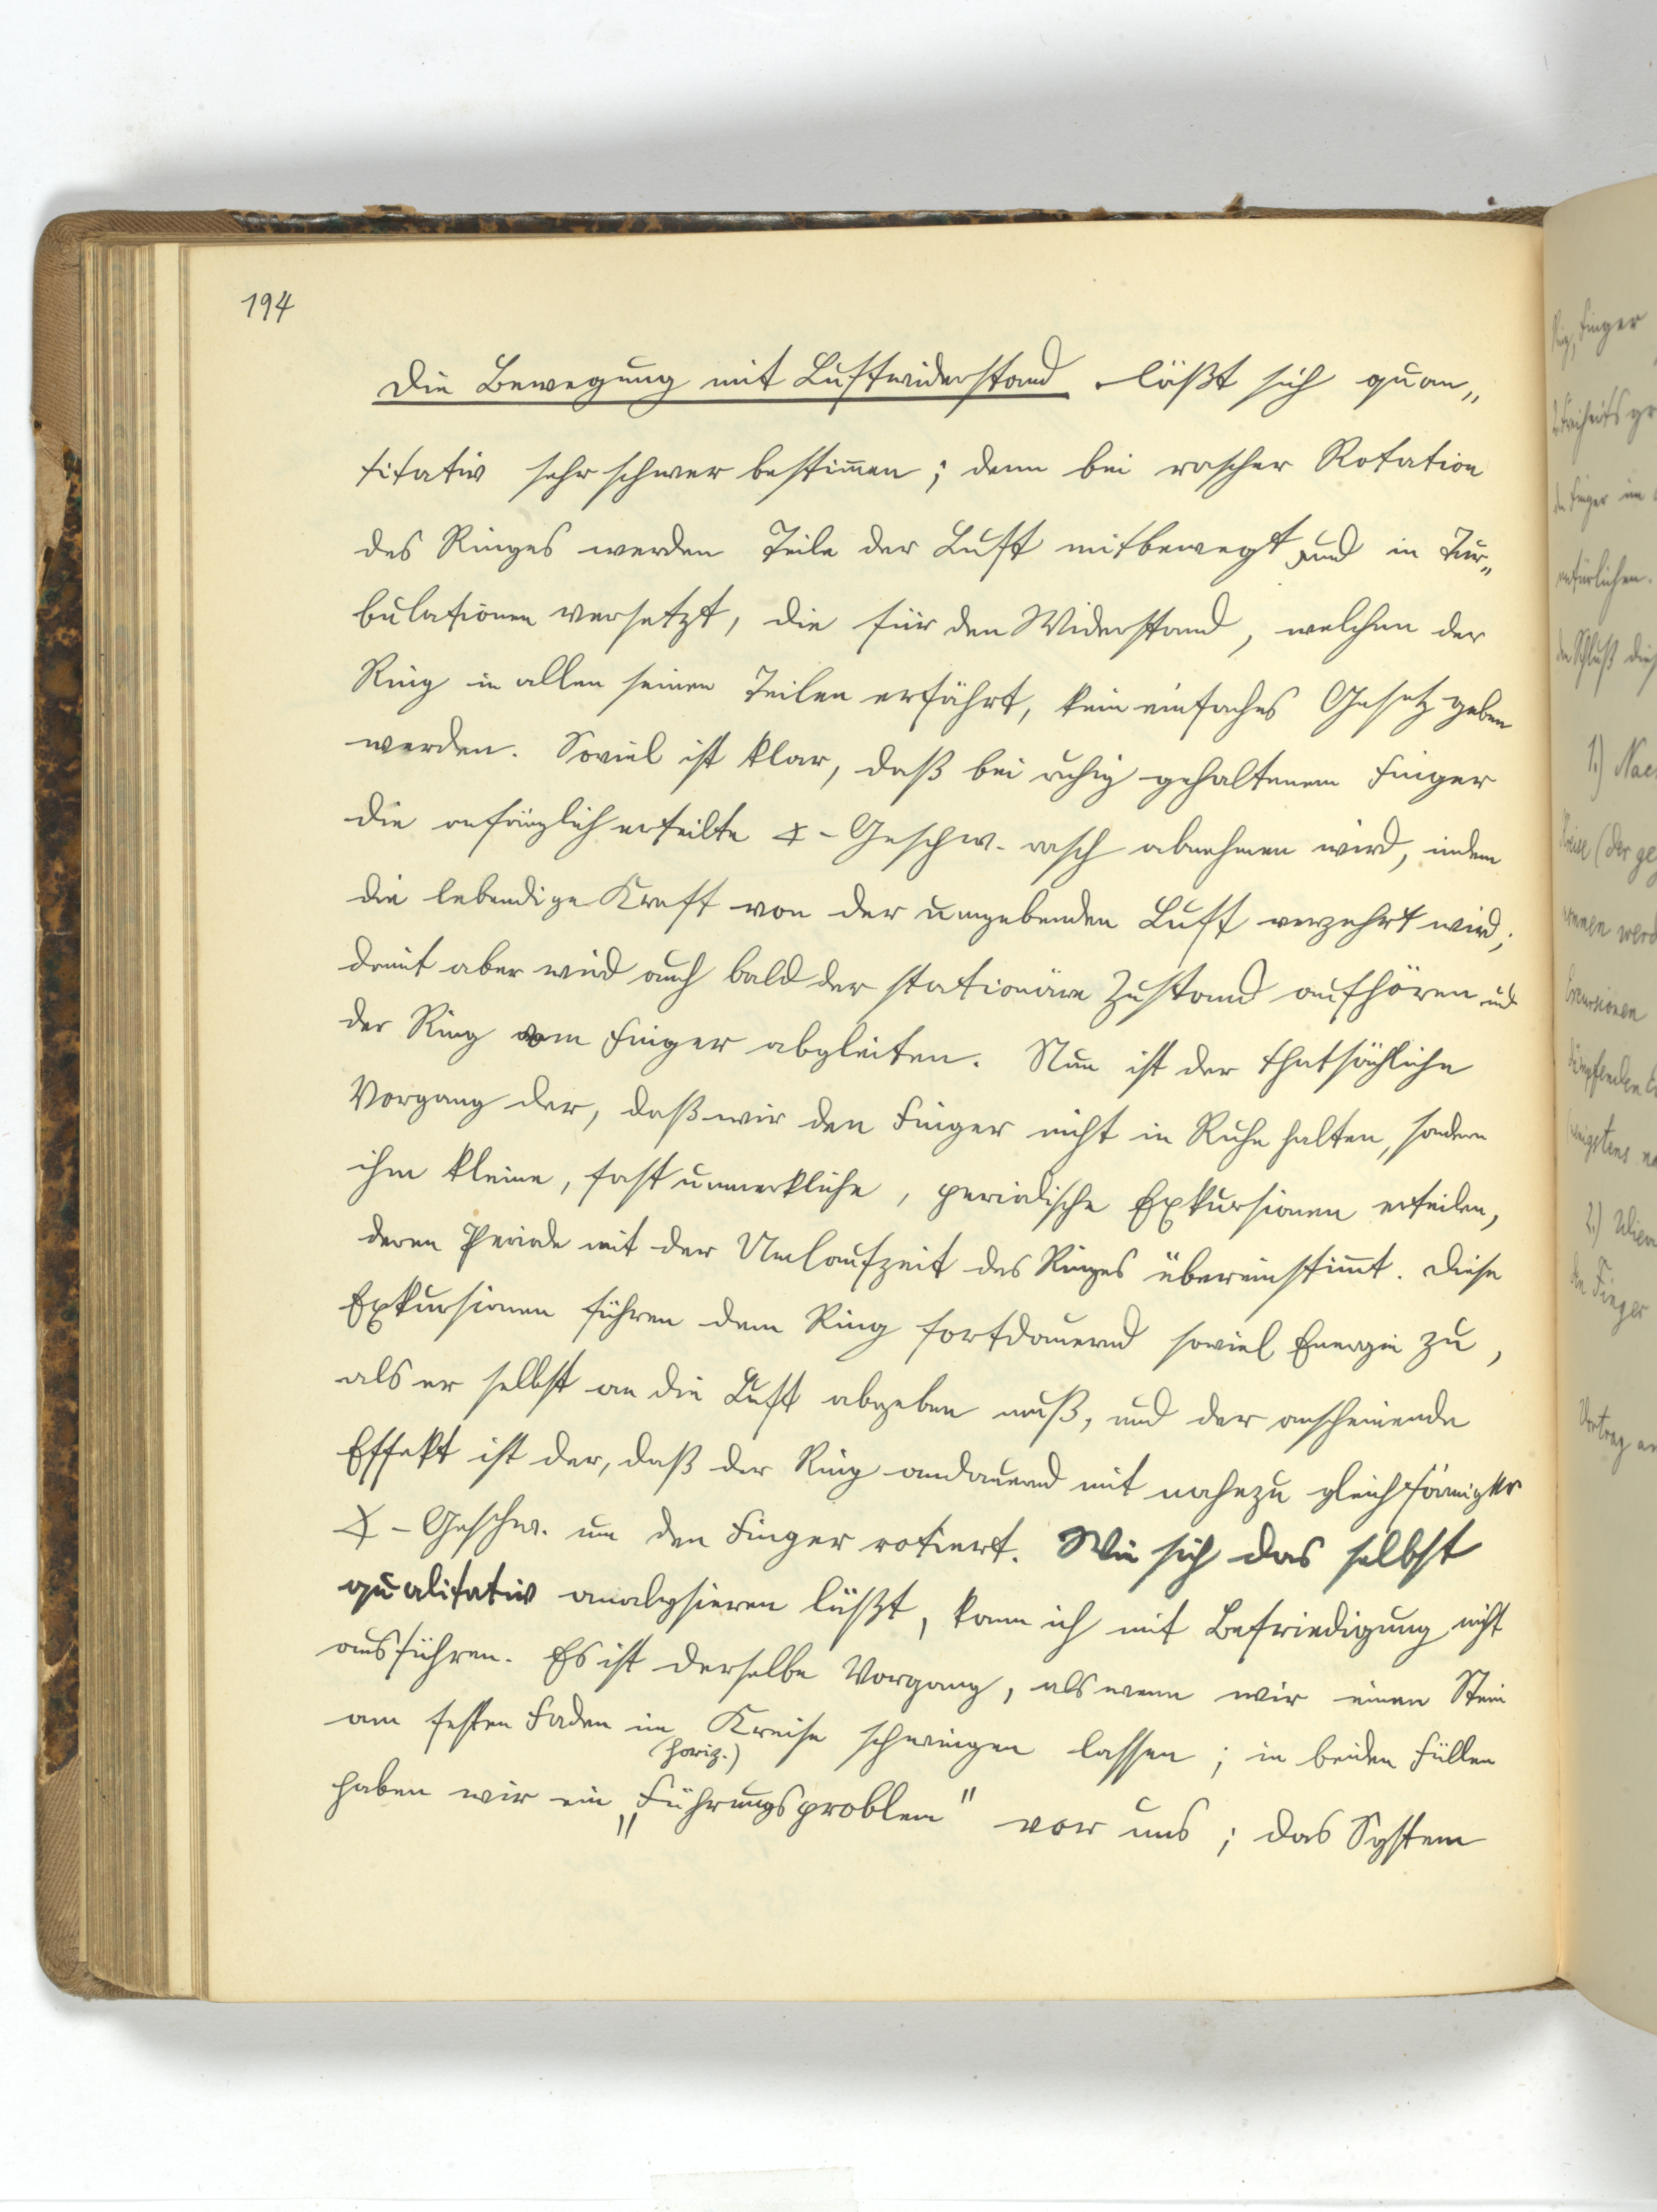 194
Die Bewegung mit Luftwiderstand läßt sich quan„
titativ sehr schwer bestim̅en; denn bei rascher Rotation
des Ringes werden Teile der Luft mitbewegt und in Tur„
bulationen versetzt, die für den Widerstand, welchen der
Ring in allen seinen Teilen erfährt, kein einfaches Gesetz geben
werden. Soviel ist klar, daß bei ruhig gehaltenem Finger
die anfänglich erteilte ∢-Geschw. rasch abnehmen wird, indem
die lebendige Kraft von der umgebenden Luft verzehrt wird;
damit aber wird auch bald der stationäre Zustand aufhören und
der Ring vom Finger abgleiten. Nun ist der thatsächliche
Vorgang der, daß wir den Finger nicht in Ruhe halten, sondern
ihm kleine, fast unmerkliche, periodische Exkursionen erteilen,
deren Periode mit der Umlaufzeit des Ringes übereinstim̅t. Diese
Exkursionen führen dem Ring fortdauernd soviel Energie zu,
als er selbst an die Luft abgeben muß, und der anscheinende
Effekt ist der, daß der Ring andauernd mit nahezu gleichförmiger
∢-Geschw. um den Finger rotiert. Wie sich das selbst
qualitativ analysieren läßt, kann ich mit Befriedigung nicht
ausführen. Es ist derselbe Vorgang, als wenn wir einen Stein
am festen Faden im Kreise schwingen lassen; in beiden Fällen
(horiz.)
haben wir ein „Führungsproblem" vor uns; das System
Ring, Finger
Freiheitsgr
der Finger im
natürlichen.
den Schluß dies
1.) Nac
Kreise (der ge
werd
Excursionen
wenigstens
2.)
den Finger
Vortrag an